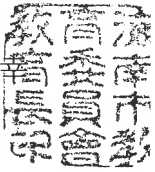 南市教
育委員會
教育長印